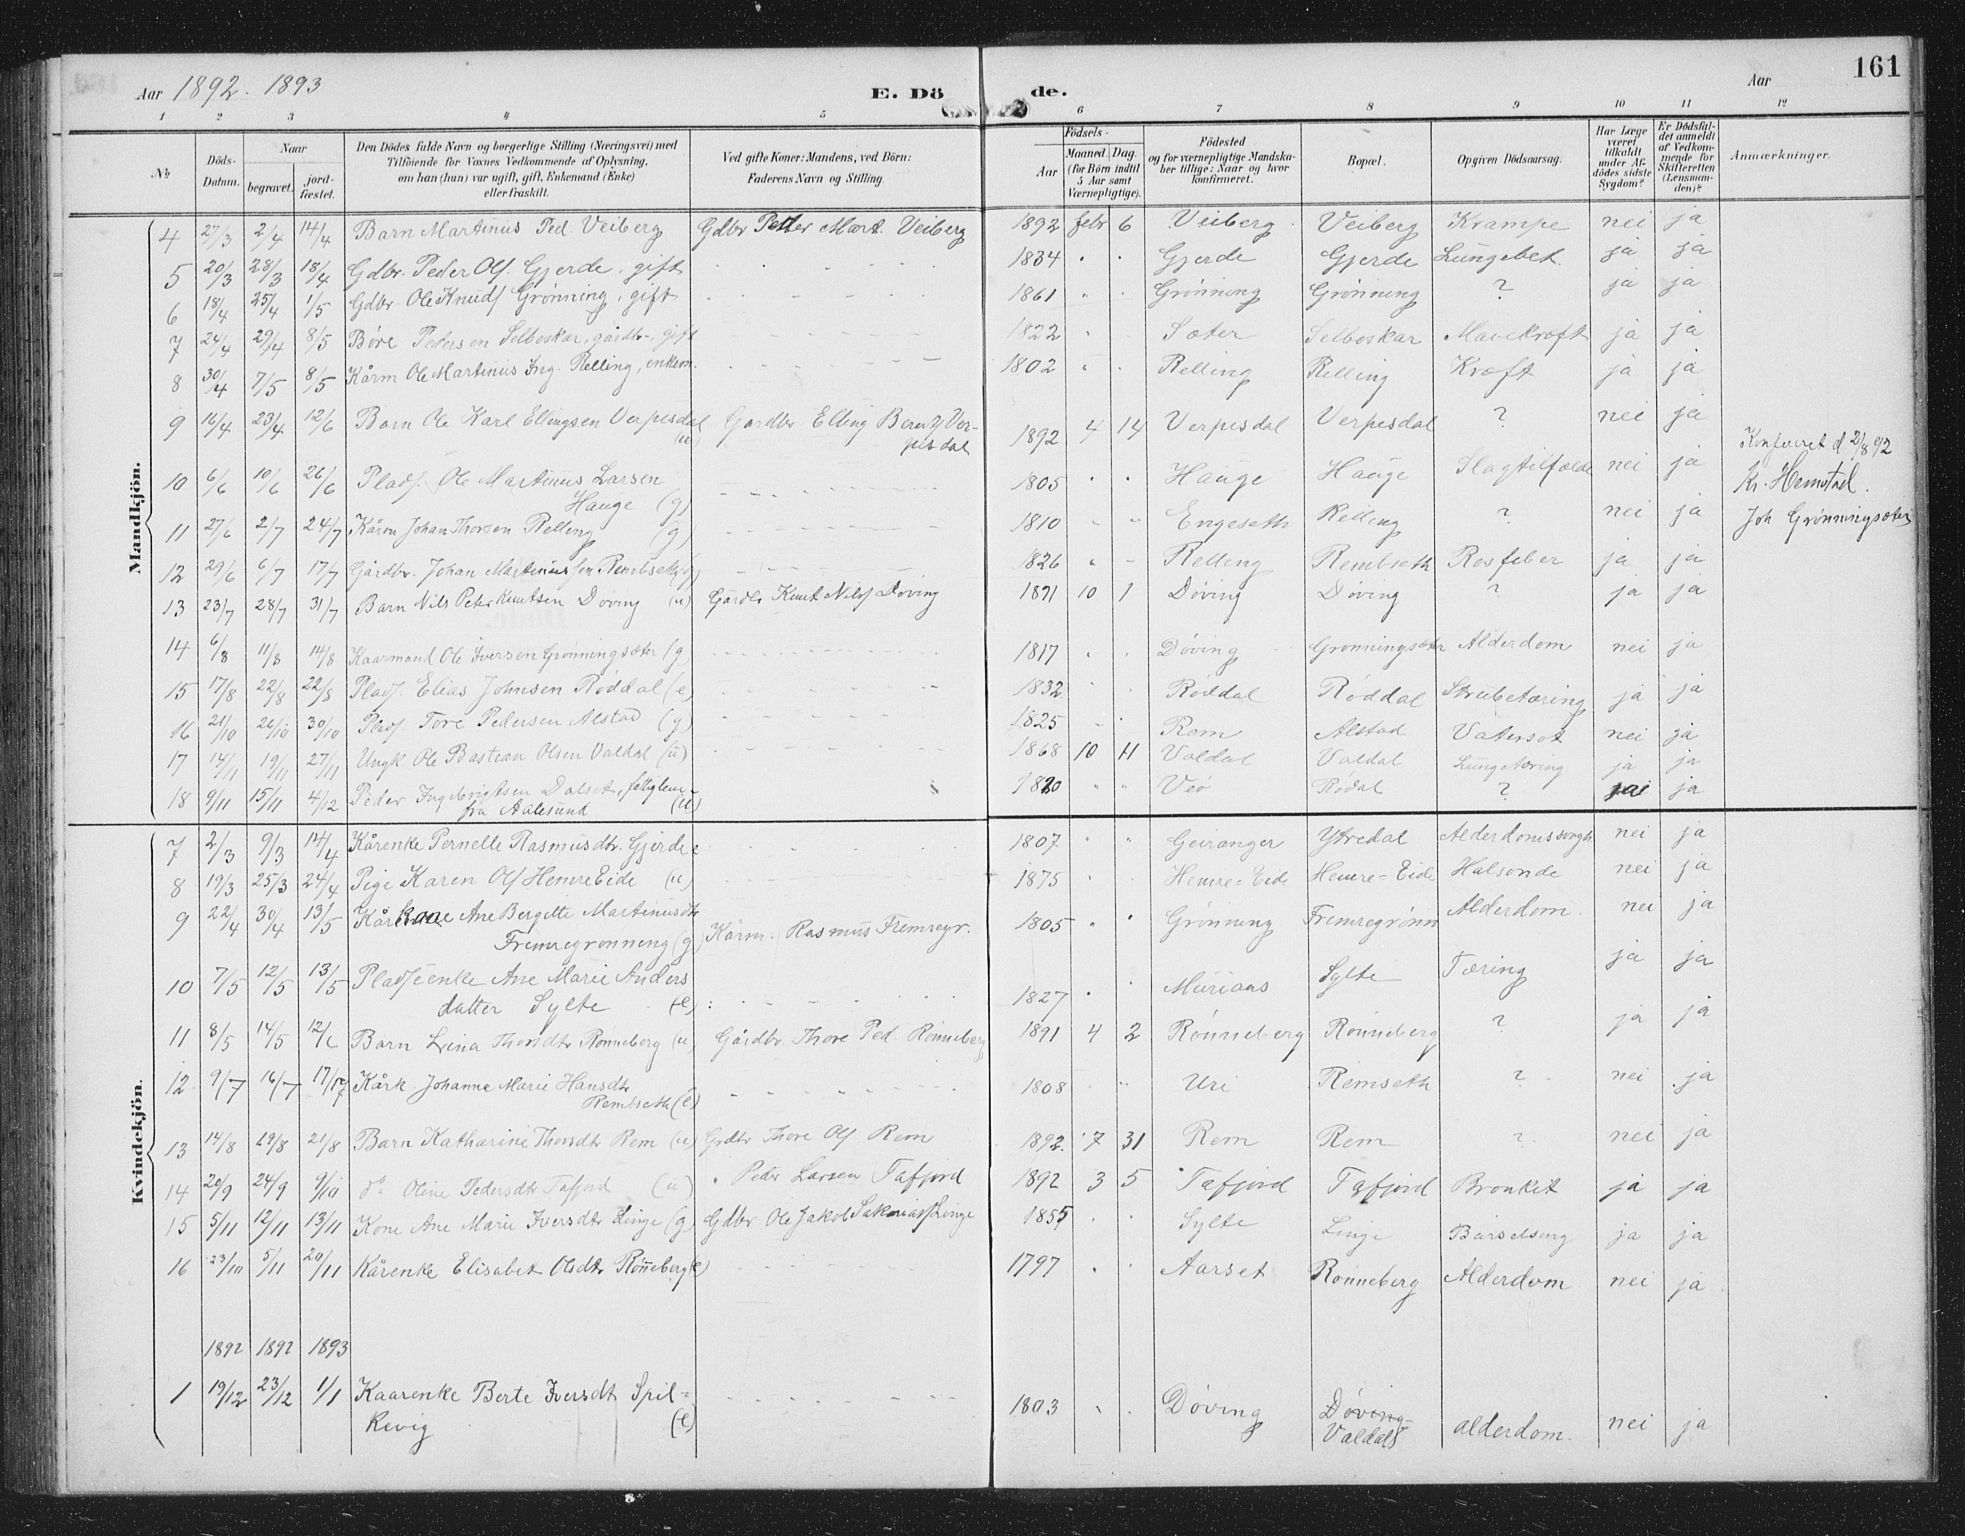 161
Aar 1892. 1893 E. Döde. Aar
1 2 3 4 5 6 7 8 9 10 11 12
№ Döds-Datum. Naar begravet. jordfæstet. Den Dödes fulde Navn og borgerlige Stilling (Næringsvei) med Tilföiende for Voxnes Vedkommende af Oplysning, om han (hun) var ugift, gift, Enkemand (Enke) eller fraskilt. Ved gifte Koner: Mandens, ved Börn: Faderens Navn og Stilling. Födsels- Aar Maaned. Dag. (for Börn indtil 5 Aar samt Værnepligtige). Födested og for værnepligtige Mandskaber tillige: Naar og hvor konfirmeret. Bopæl. Opgiven Dödsaarsag. Har Læge været tilkaldt under Afdödes sidste Sygdom? Er Dödsfaldet anmeldt af Vedkommende for Skifteretten (Lensmanden)? Anmærkninger.
Mandkjön.
4 27/3 2/4 14/4 Barn Martinus Ped. Veiberg Gdbr Petter Mart. Veiberg 1892 febr 6 Veiberg Veiberg Krampe nei ja
5 20/3 28/3 18/4 Gdbr. Peder Ols. Gjerde, gift 1834 Gjerde Gjerde Lungebet. ja ja
6 18/4 25/4 1/5 Gdbr Ole Knuds Grönning, gift 1861 Grönning Grönning ? ja ja
7 24/4 29/4 8/5 Böre Pedersen Selboskar, gårdbr, gift 1822 Sæter Selboskar Mavekræft ja ja
8 30/4 7/5 8/5 Kårm Ole Martinus Ing. Relling, enkem. 1802 Relling Relling Kræft ja ja
9 16/4 23/4 12/6 Barn Ole Karl Ellingsen Verpesdal (u) Gårdbr Elling Berntz Verpesdal 1892 4 14 Verpesdal Verpesdal ? nei ja
Konfereret d 2/8 92
10 6/6 10/6 26/6 Plads. Ole Martinus Larsen Hauge (g) 1805 Hauge Hauge Slagtilfælde nei ja Kr. Hemstad.
11 27/6 2/7 24/7 Kårm Johan Thorsen Relling (g) 1810 Engeseth Relling ? nei ja Joh Grønningsæter
12 29/6 6/7 17/7 Gårdbr. Johan Martinussen Rembseth (g) 1826 Relling Rembseth Rosfeber ja ja
13 23/7 28/7 31/7 Barn Nils Peter Knutsen Döving (u) Gårdbr Knut Nils Döving 1891 10 1 Döving Döving ? ja ja
14 6/8 11/8 14/8 Kaarmand Ole Iversen Grönningsæter (g) 1817 Döving Grönningsæter Alderdom nei ja
15 17/8 22/8 22/8 Plads. Elias Johnsen Röddal (e) 1832 Röddal Röddal Strubetæring ja ja
16 21/10 26/10 30/10 Plads. Tore Pedersen Alstad (g) 1825 Rem Alstad Vatersot nei ja
17 14/11 19/11 27/11 Ungk Ole Bastian Olsen Valdal (u) 1868 10 11 Valdal Valdal Lungetæring ja ja
18 9/11 15/11 4/12 Peder Ingebrigtsen Dalset, fattiglem fra Aalesund (u) 1820 Veö Rödal ? nei ja
Kvindekjön.
7 2/3 9/3 14/4 Kårenke Pernelle Rasmusdtr. Gjerde e 1807 Geiranger Ytredal Alderdomssvagh nei ja
8 19/3 25/3 24/4 Pige Karen Ols Hemre Eide (u) 1875 Hemre-Eide Hemre-Eide Halsonde nei ja
9 22/4 30/4 13/5 Kårkone Ane Bergitte Martinusdtr Fremregrönning (g) Kårm. Rasmus Fremregr. 1805 Grönning Fremregrönn Alderdom. nei ja
10 7/5 12/5 13/5 Pladseenke Ane Marie Andersdatter Sylte (e) 1827 Muriaas Sylte Tæring ja ja
11 8/5 14/5 12/6 Barn Lina Thorsdtr Rönneberg (u) Gårdbr Thore Ped. Rönneberg 1891 4 2 Rönneberg Rönneberg ? ja ja
12 9/7 16/7 17/7 Kårk Johanne Marie Hansdtr Rembseth (e) 1808 Uri Remseth ? nei ja
13 14/8 19/8 21/8 Barn Katharine Thorsdtr Rem (u) Grdbr Thore Ols Rem 1892 7 31 Rem Rem ? nei ja
14 20/9 24/9 9/10 do Oline Pedersdtr Tafjord (u) " Peder Larsen Tafjord 1892 3 5 Tafjord Tafjord Bronkit ja ja
15 5/11 12/11 13/11 Kone Ane Marie Iversdtr Linge (g) Gdbr Ole Jakob Sakarias Linge 1855 Sylte Linge Barselseng ja ja
16 23/10 5/11 20/11 Kårenke Elisabet Olsdtr Rönneberg (e) 1797 Aarset Rönneberg Alderdom nei ja
1892 1892 1893
1 19/12 23/12 1/1 Kaarenke Berte Iversdt Spilkevig (e) 1803 Döving Döving Valdal Alderdom. nei ja